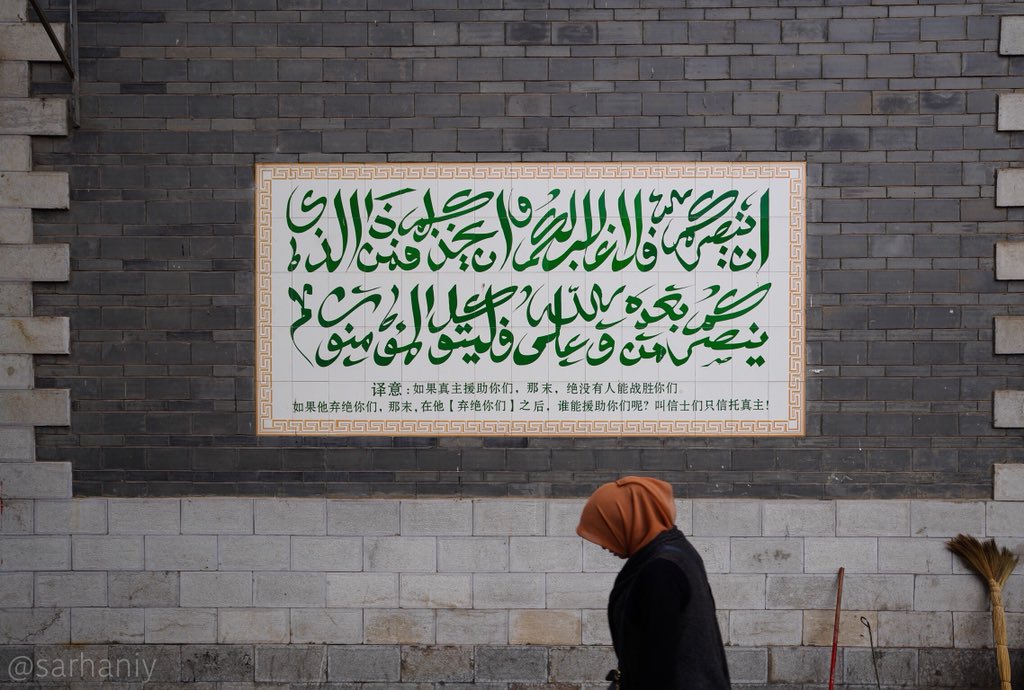 ان ينصركم الله فلا غالب لكم وان يخذلكم فمن ذا الذى
ينصركم من بعده وعلى الله فليتوكل المؤمنون
译意:如果真主援助你们，那末，绝没有人能战胜你们。
如果他弃绝你们，那末，在他【弃绝你们】之后，谁能援助你们呢？叫信士们只信托真主！
@sarhaniy